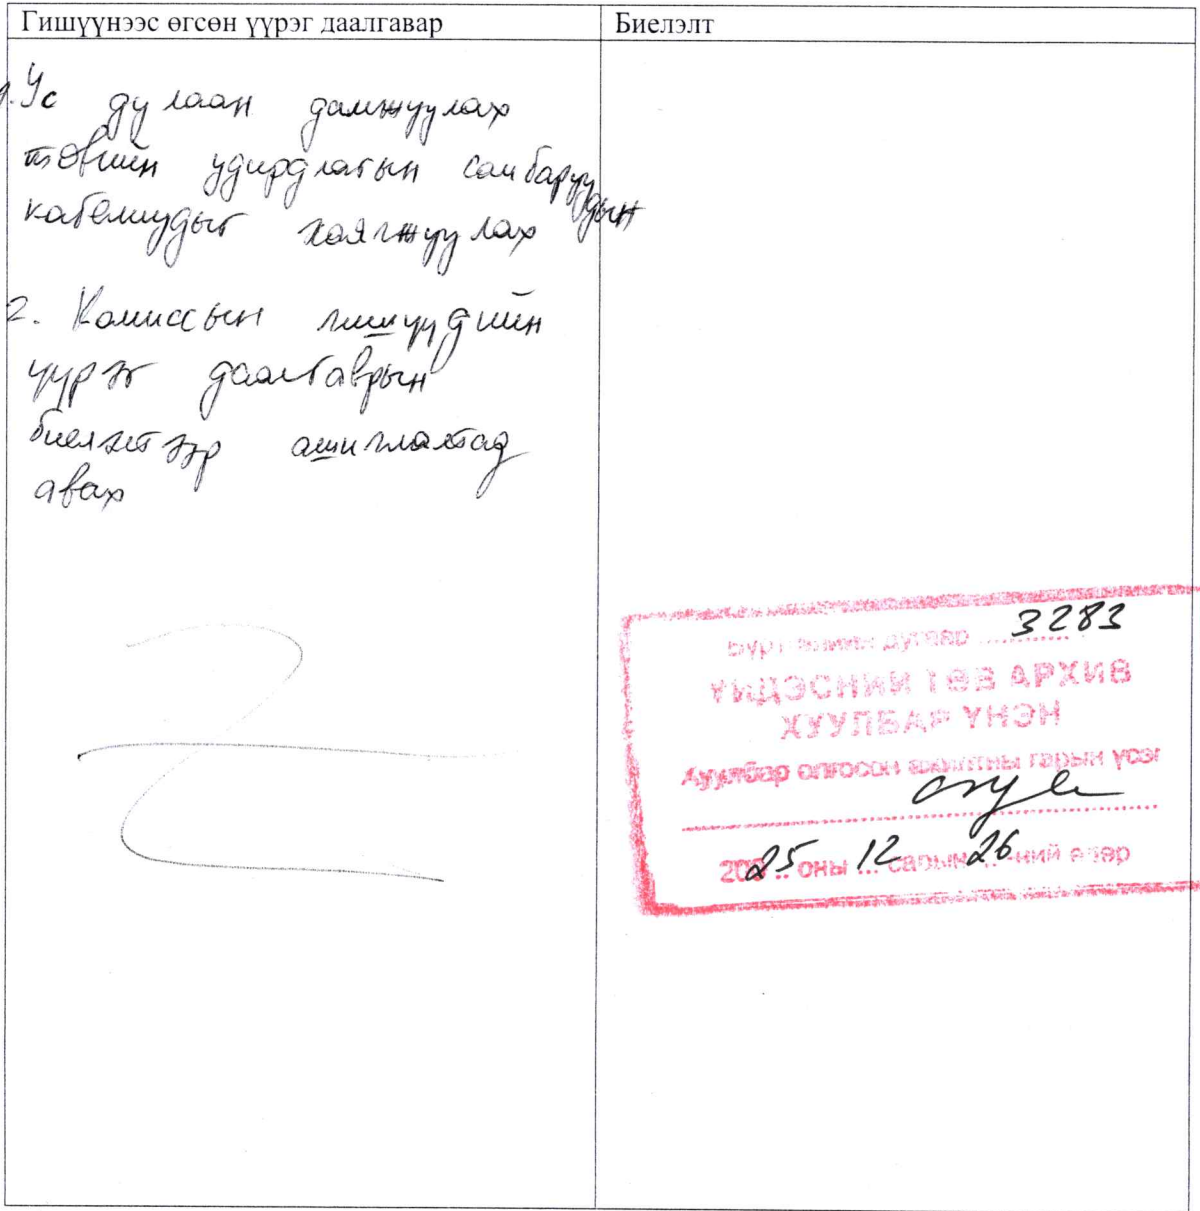 Гишүүнээс өгсөн үүрэг даалгавар
Биелэлт
1. Ус дулаан дамжуулах
төвийн удирдлагын самбаруудын
кабелиудыг хаягжуулах
2. Комиссын гишүүдийн
үүрэг даалгаврын
биелэлтээр ашиглалтад
авах
Бүртгэлийн дугаар ............ 3283
ҮНДЭСНИЙ ТӨВ АРХИВ
ХУУЛБАР ҮНЭН
Хуулбар олгосон ажилтны гарын үсэг
2025 .. оны 12 ... сарын 26 ..-ний өдөр